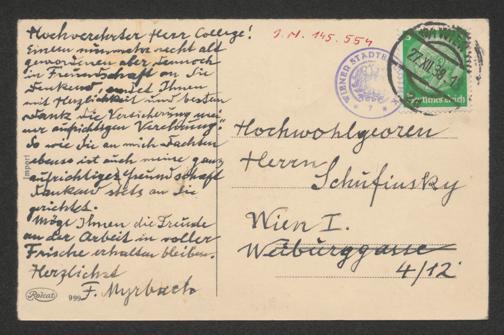 Hochverehrter Herr College!
Einem nunmehr recht alt
gewordenen aber dennoch
in Freundschaft an Sie
Denkend, sendet Ihnen
mit Herzlichkeit und besten
Dank die Versicherung
aufrichtigen Verehrung!
So wie Sie an mich dachten
ebenso ist auch meine ganz
aufrichtige Freundschaft
dankend stets an Sie
gerichtet.
Möge Ihnen die Freude
an der Arbeit in voller
Frische erhalten bleiben.
Herzlichst
F. Myrbach
Import
Roicat 999
I.N. 145.554
WIENER STADTBI
7
WIEN
27.XII.39.
Deutsches Reich
Hochwohlgeoren
Herrn
Schufinsky
Wien I.
Weiburggasse
4/12